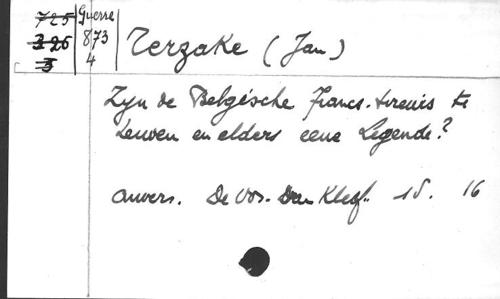 725 Guerre
226 873
3 4
Terzake (Jan)
Zyn de Belgische Francs-tireurs te
Leuven en elders eene Legende?
Anvers. De Vos-Van Kleef. 15. 16